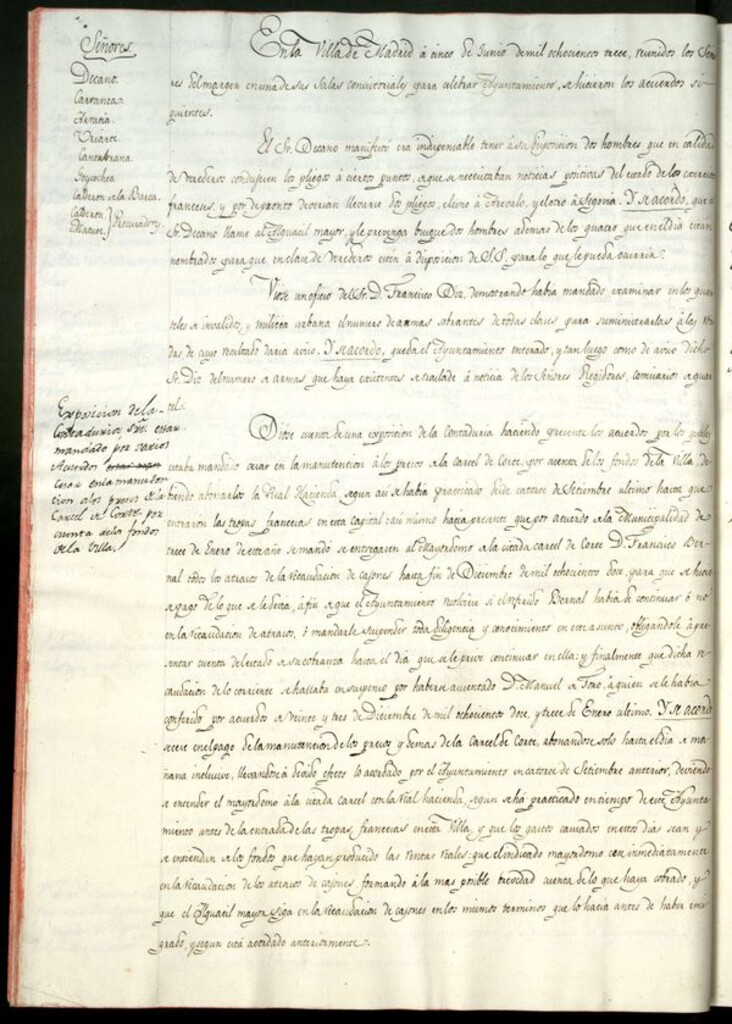 Señores.
Decano.
Carranza.
Uriarte.
Goycochea
Calderon de la Barca.
Calderon. } Procuradores
En la Villa de Madrid á cinco de Junio de mil ochocientos trece, reunidos los Seño
res del margen en una de sus Salas consistoriales para celebrar Ayuntamiento, se hicieron los acuerdos si
guientes.
El Sr. Decano manifestó era indispensable tener á su disposicion dos hombres que en calidad
de verederos condugesen los pliegos á ciertos puntos, de que se necesitaban noticias positivas del estado de los exercitos
franceses, y por de pronto deverian llevarse dos pliegos, el uno á Arevalo, y el otro á Segovia. Y se acordó, que el
Sr. Decano llame al Alguacil mayor, y le prevenga busque dos hombres ademas de los quatro que en el dia estan
nombrados para que en clase de verederos esten á disposicion de S.S. para lo que se pueda ocurrir.
Viose un oficio del Sr. D. Francisco Diz, demostrando habia mandado examinar en los quar
teles de invalidos, y milicia urbana el numero de armas sobrantes de todas clases para suministrarlas á las
das de cuyo resultado daria aviso. Y se acordó, queda el Ayuntamiento enterado, y tan luego como dé aviso dicho
Sr. Diz del numero de armas que haya existentes se traslade á noticia de los Señores Regidores, comisarios de quar
tel.
Exposicion de la
Contaduria sre. estar
mandado por varios
Acuerdos
cesar en la manuten
cion a los presos de la
Carcel de Corte por
cuenta de los fondos
de la Villa.
Diose cuenta de una exposicion de la Contaduria haciendo presente los acuerdos por los quales
estaba mandado cesar en la manutencion á los presos de la carcel de Corte, por cuenta de los fondos de la Villa, de
biendo abonarlos la Real Hacienda, segun asi se habia practicado desde catorce de Setiembre ultimo hasta que
entraron las tropas francesas en esta capital: asi mismo hacia presente que por acuerdo de la Municipalidad de
trece de Enero de este año se mandó se entregasen al Mayordomo de la citada carcel de Corte D. Francisco Ber-
nal todos los atrasos de la recaudacion de cajones hasta fin de Diciembre de mil ochocientos doce, para que se hicie
se pago de lo que se le devia, á fin de que el Ayuntamiento resolviese si el referido Bernal habia de continuar ó no
en la recaudacion de atrasos, ó mandarle suspender toda diligencia y conocimiento en este asunto, obligandole á pre
sentar cuenta del estado de su cobranza hasta el dia que se le prive continuar en ella: y finalmente que dicha re
caudacion de lo corriente se hallaba en suspenso por haberse ausentado D. Manuel de Toro, á quien se le habia
conferido por acuerdos de veinte y tres de Diciembre de mil ochocientos doce, y trece de Enero ultimo. Y se acordó
cese en el pago de la manutencion de los presos y demas de la Carcel de Corte, abonandose solo hasta el dia de ma
ñana inclusive, llevandose á devido efecto lo acordado por el Ayuntamiento en catorce de Setiembre anterior, deviendo
se entender el mayordomo de la citada carcel con la Real hacienda, segun se ha practicado en tiempo de este Ayunta
miento antes de la entrada de las tropas francesas en esta Villa, y que los gastos causados en estos dias sean y
se entiendan de los fondos que hayan producido las rentas reales: que el indicado mayordomo cese inmediatamente
en la recaudacion de los atrasos de cajones, formando á la mas posible brevedad cuenta de lo que haya cobrado, y
que el Alguacil mayor siga en la recaudacion de cajones en los mismos terminos que lo hacia antes de haber emi
grado, y segun está acordado anteriormente.